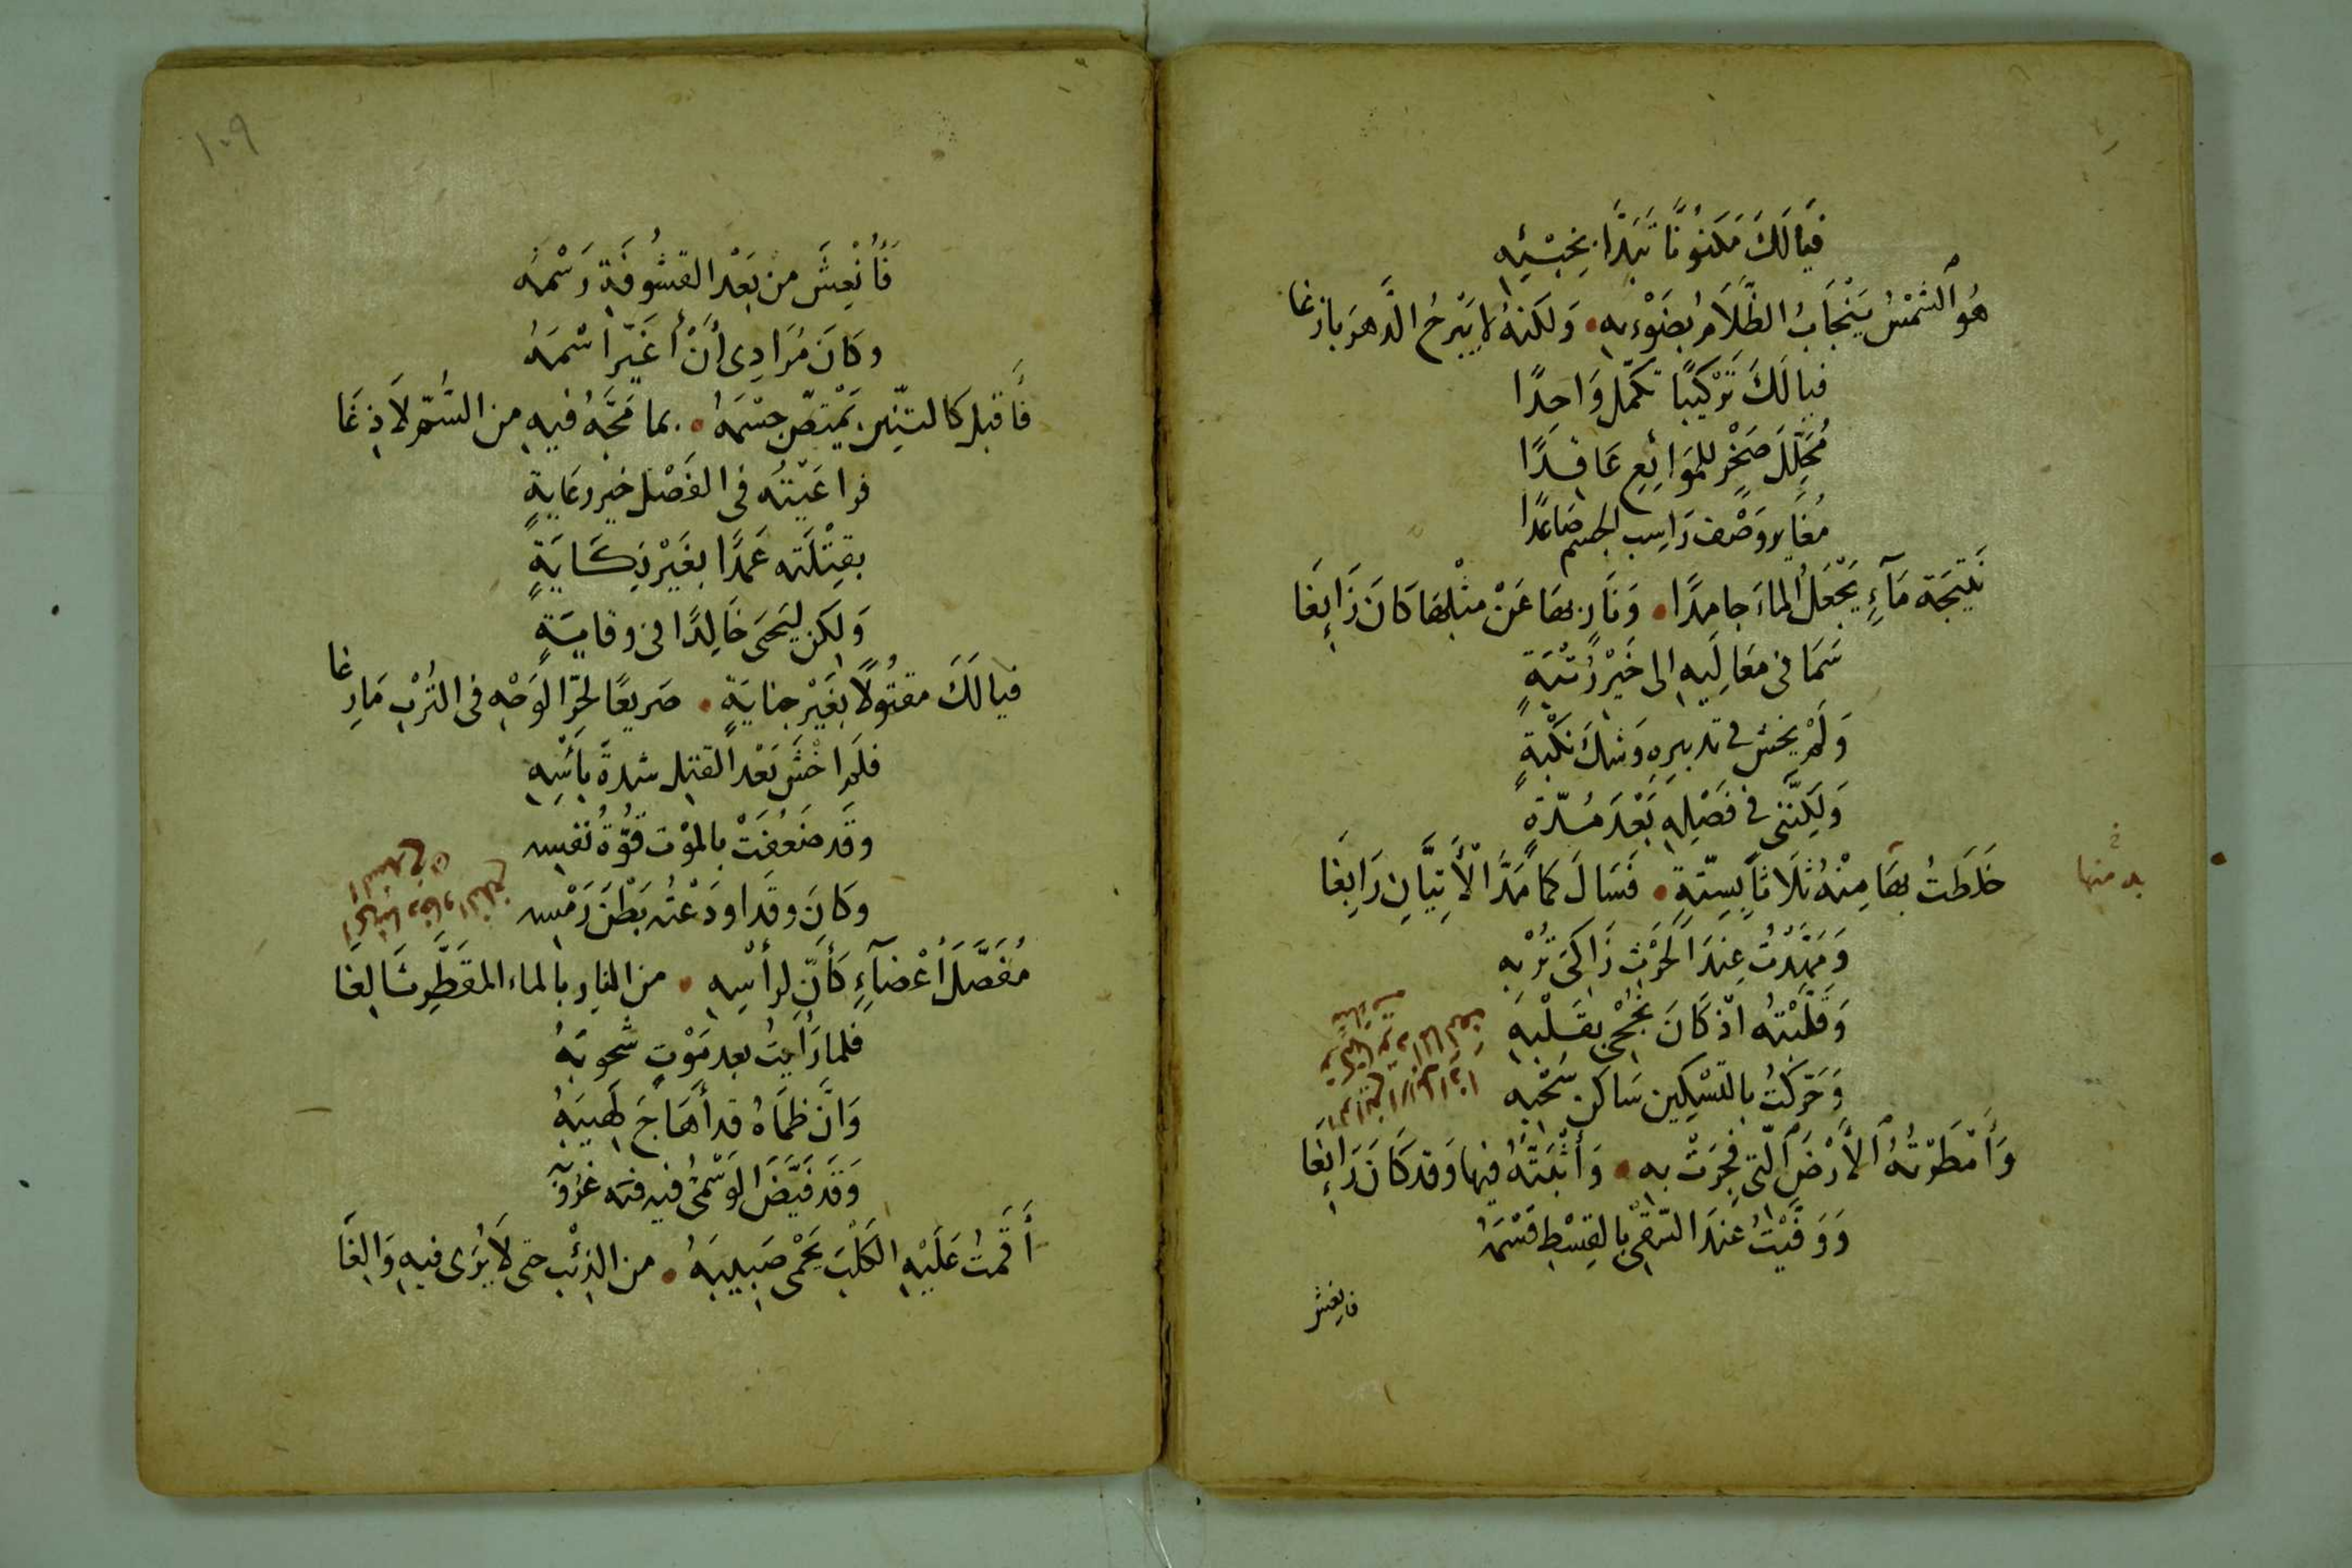 فَيَا لَكَ مَكنُونًا تَبَدَّا بِخِبْئِهِ
هُوَ الشَّمْسُ يَنْجَابُ الظَّلَامُ بِضَوْءِهِ • وَلَكنهُ لَا يَبْرحُ الدَّهرَ بازغا
فيا لَكَ تَرْكيبًا تَكَمَّلَ وَاحِدًا
مُحَلِّلَ صَخْرٍ للمَوَائِعِ عَاقِدًا
مُغَايِر وَصْف رَاسِب الجسم صَاعِدًا
نَتِيجَة مَآءٍ يَجْعَلُ الماءَ جامِدًا • وَنَارٍ بهَا عَنْ مثْلِهَا كَانَ زَائِغَا
سَمَا في مَعَالِيهِ إلى خَيْرِ رُتْبَةٍ
وَلَمْ يخش في تدبيرِهِ وَشكَ نَكْبَةٍ
وَلَكِنَّني في فَصْلِهِ بَعْدَ مُدَّةٍ
خَلَطتُ بهَا مِنْهُ ثَلَاثًا بِسِتّةٍ • فَسَالَ كمَا مَدَّ الأَتِيَّانِ رَابِغَا
به منها
وَمَهَّدْتُ عِندَ الحَرْثِ زَاكيَ تُرْبِهِ
وَقَلَّبْتُهُ اذ كَانَ نُجْحِي بِقَلْبِهِ
وَحَرَّكْتُ بالتسْكِين سَاكن سُحْبِهِ
وَأَمْطَرْتُهُ الأَرْضَ الّتي فُجِرَتْ بِهِ • وَأَثْبَتُّهُ فيهَا وَقد كَانَ رَائِغَا
وَوَفَّيْتُ عندَ السَّقْي بالقِسْطِ قَسْمَهُ
فانعش
١٠٩
فَأُنْعِشَ من بَعْد القشُوفَةِ رَسْمهُ
وكَانَ مُرَادِي أَنْ أُغَيِّرَ اسْمَهُ
فَأَقبل كالتنّين يَمْتصّ جسْمَهُ • بما مَجَّهُ فيهِ من السُّمِّ لَاذِغَا
فراعَيْتُه في الفَضْل خير رعَايةٍ
بقِتْلَته عَمْدًا بغَيْر نِكَايَةٍ
وَلكن ليَحيَ خَالِدًا في وقايَةٍ
فيا لَكَ مقتُولًا بغَيْرِ جنايَةٍ • صَريعًا لحُرِّ الوَجْهِ في التُّرْبِ مَارِغا
فلَم اخْشَ بَعْد القتل شدةَ بأْسِهِ
وقَد ضَعُفَتْ بالمَوْت قُوَّةُ نفسِه
وكَانَ وقَد اودَعْتُه بَطْنَ رَمْسِه
مُفَصَّلَ أَعْضآءٍ كَأَنّ لرأْسِهِ • من النارِ بالماء المقَطَّرِ ثَالِغَا
فلما رَأَيتُ بعد مَوْتٍ شحوبَهُ
وَانَّ ظَمَاهُ قد أَهَاجَ لَهِيبَهُ
أَقَمتُ عَلَيْهِ الكَلْبَ يَحْمِي صَبِيبَهُ • من الذئْبِ حتى لَا يُرَى فيهِ وَالِغَا